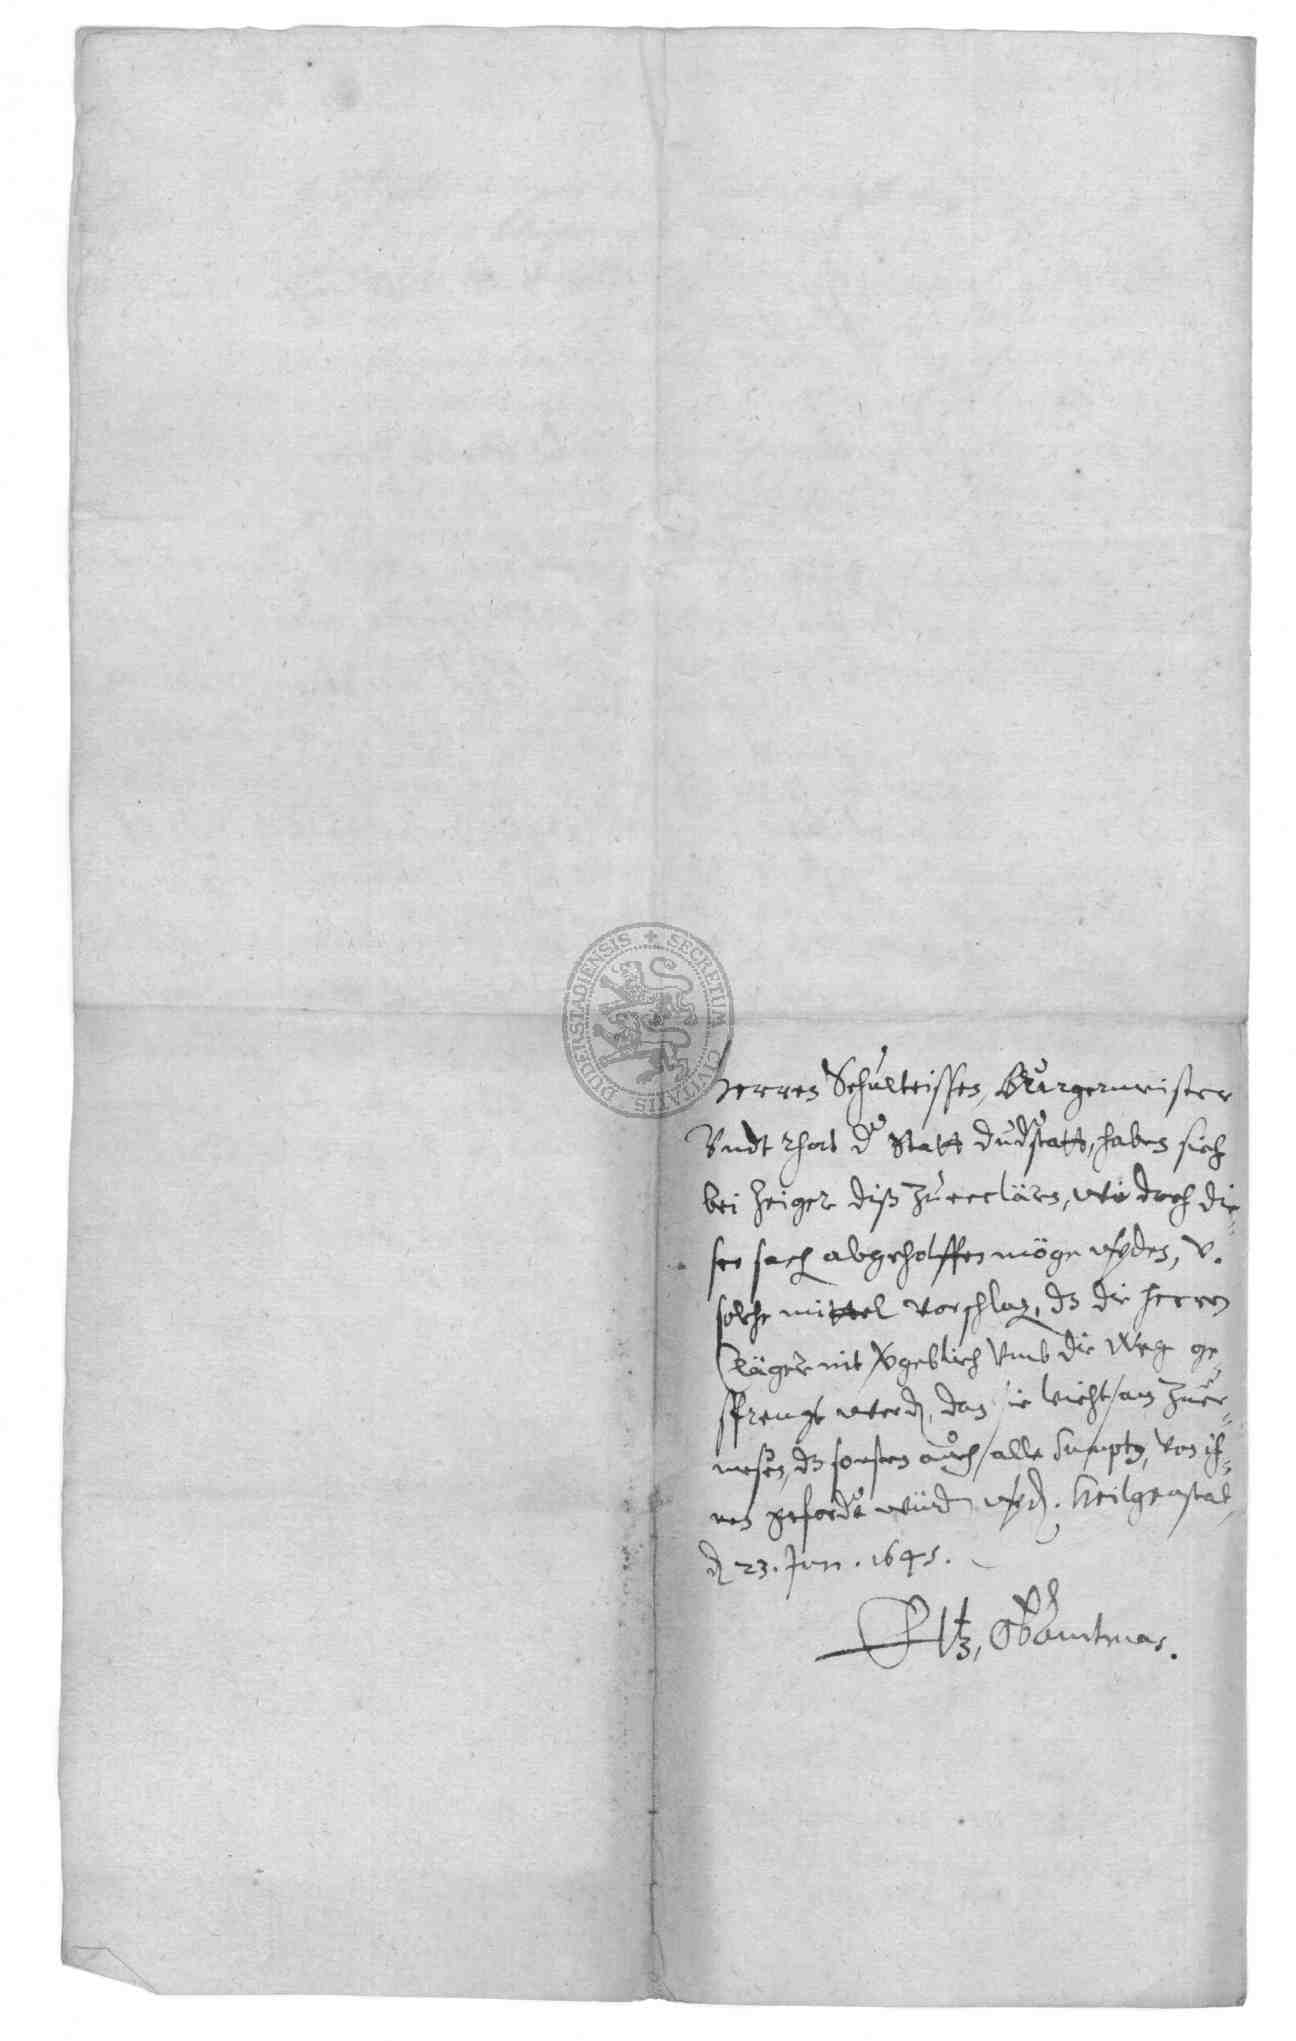 SECRETUM CIVITATIS DUDERSTADIENSIS
Herren Schulteissen, Burgermeister
Vndt rhat d Statt Dudstatt, haben sich
bei Zeiger diß zu erclären, wie doch die-
ser sach abgeholffen möge wden, v.
solche mittel vorschlag, dz die Herren
Cläger nit vgeblich vmb die Weg ge-
sprengt werd, dan sie leicht/am zuer-
meßen, dz sonsten auch/alle sumpt, von ih-
nen gefordt würd wd. Heilgenstat,
d 23. Jan. 1645.
Eltz, Obamtman.